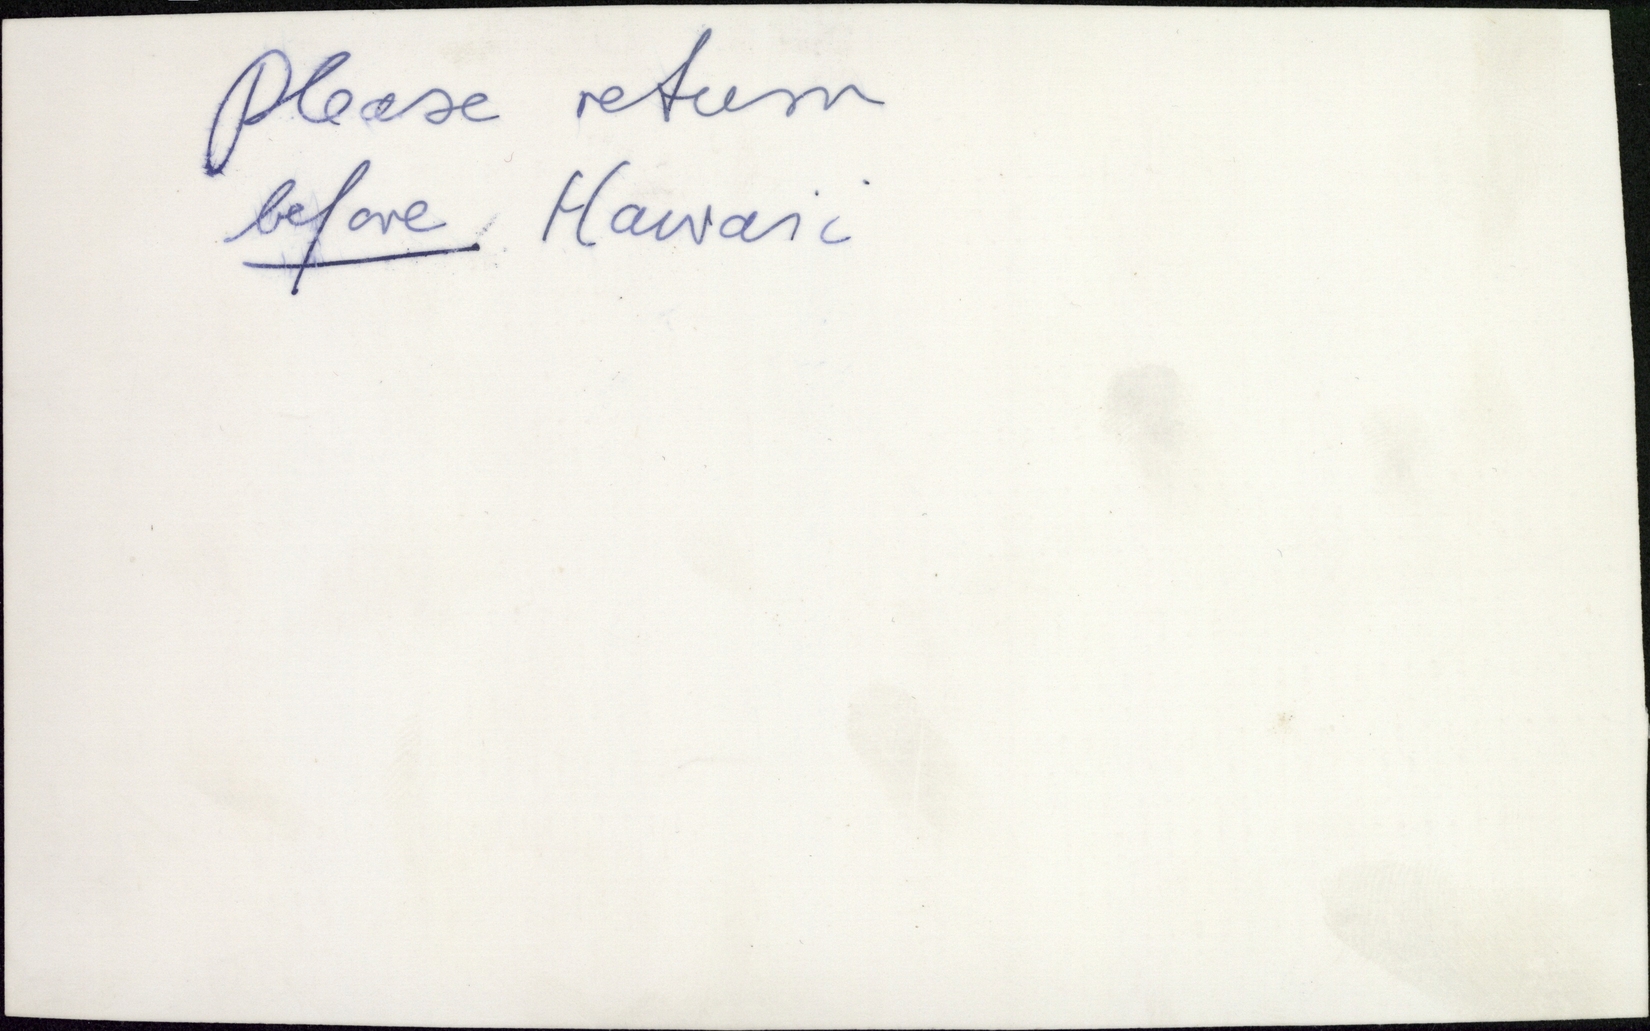 Please return
before Hawaii